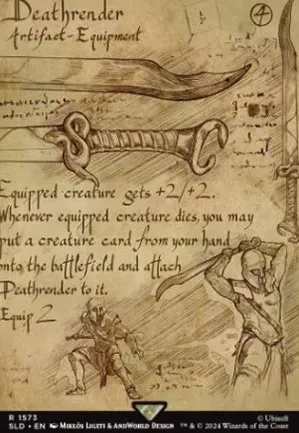 Deathrender
4
Artifact-Equipment
Equipped creature gets +2/+2.
Whenever equipped creature dies, you may
put a creature card from your hand
onto the battlefield and attach
Deathrender to it.
Equip 2
R 1573
SLD • EN MIKLÓS LIGETI & ANDWORLD DESIGN
© Ubisoft
™ & © 2024 Wizards of the Coast